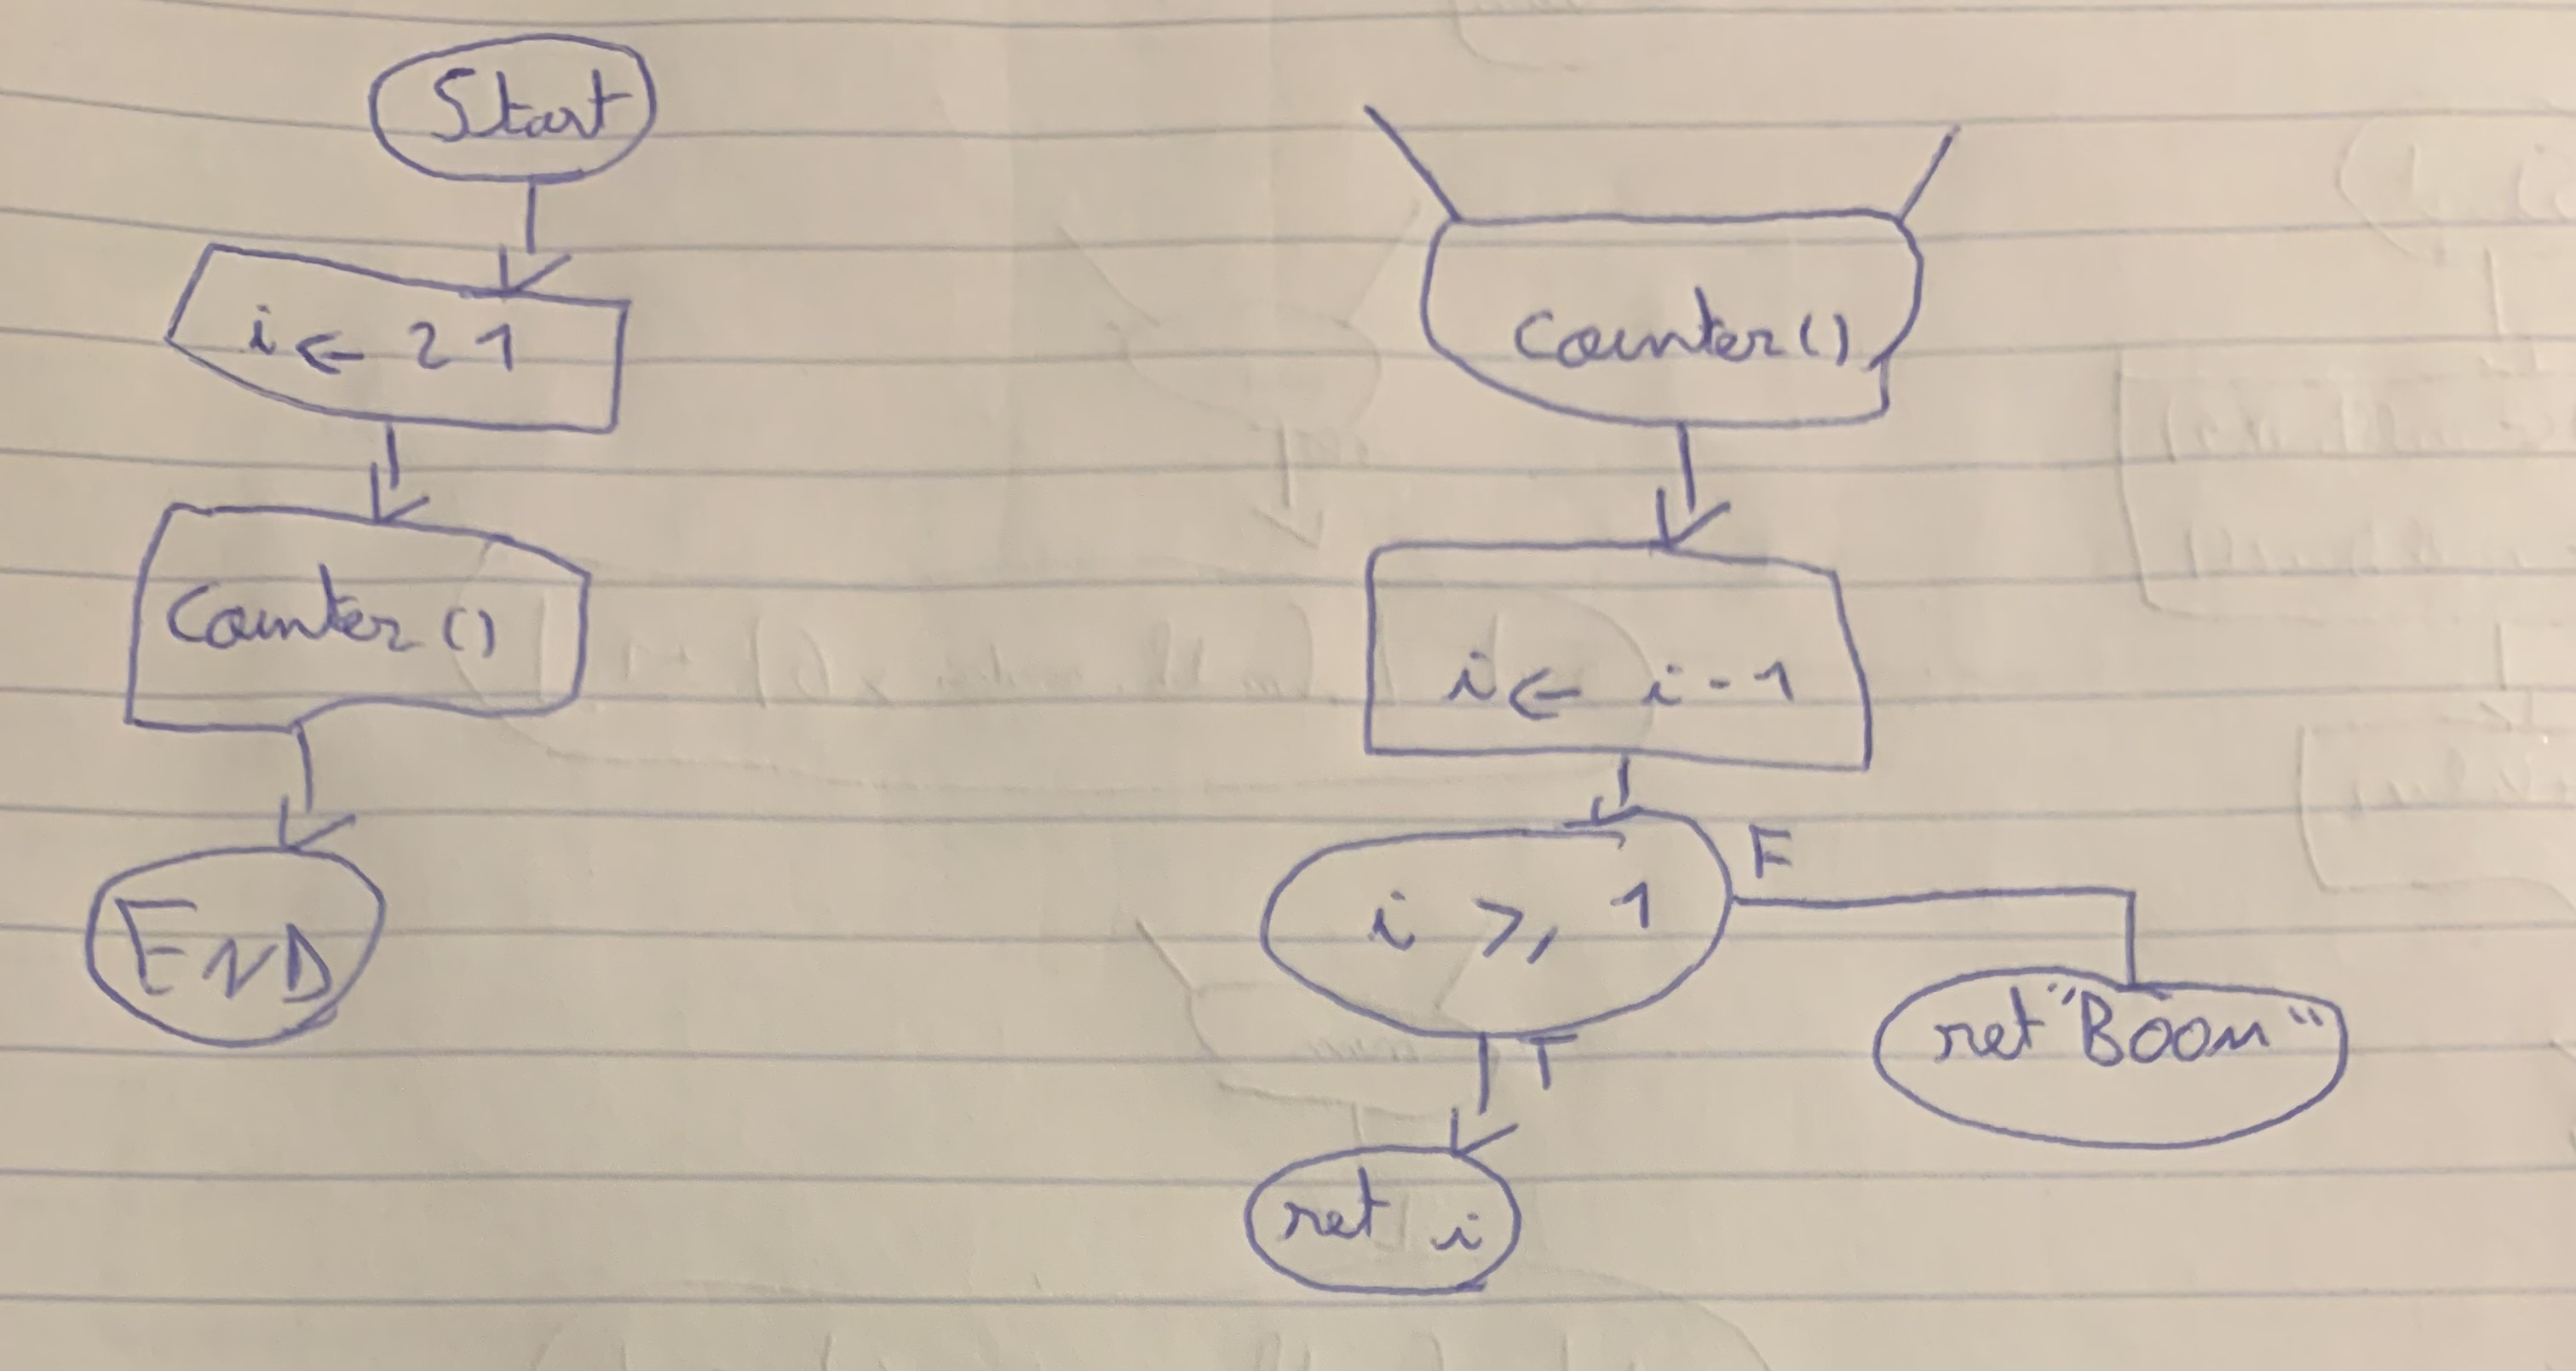 Start
i ← 21
Counter()
END
Counter()
i ← i - 1
i ⩾ 1
F
T
ret "Boom"
ret i